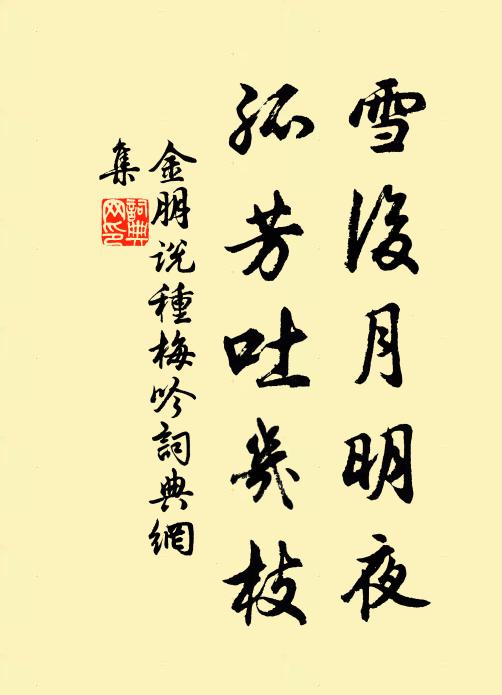 雪後月明夜
孤芳吐幾枝
金朋説種梅吟詞典網
集
詞典网印